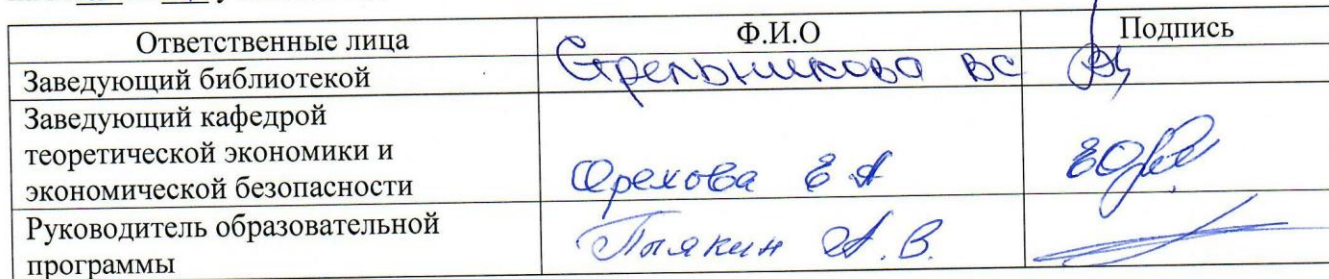 Ответственные лица Ф.И.О Подпись
Заведующий библиотекой Стрельникова ВС
Заведующий кафедрой
теоретической экономики и
экономической безопасности Орехова Е А
Руководитель образовательной
программы А.В.